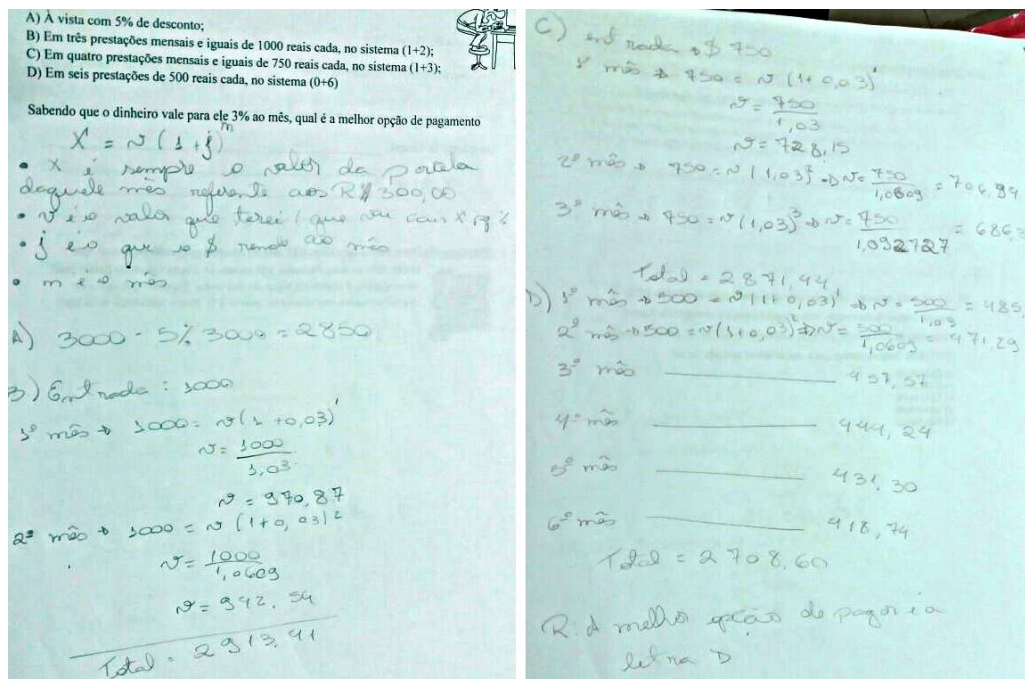 A) À vista com 5% de desconto;
B) Em três prestações mensais e iguais de 1000 reais cada, no sistema (1+2);
C) Em quatro prestações mensais e iguais de 750 reais cada, no sistema (1+3);
D) Em seis prestações de 500 reais cada, no sistema (0+6)
Sabendo que o dinheiro vale para ele 3% ao mês, qual é a melhor opção de pagamento
X = v (1+j)^m
• X é sempre o valor da parcela
daquele mês referente aos R$ 300,00
• v é o valor que terei / que
• j é o que o $ rende ao mês
• m é o mês
A) 3000 - 5% 3000 = 2850
B) Entrada: 1000
1º mês → 1000 = v (1+0,03)^1
v = 1000/1,03
v = 970,87
2º mês → 1000 = v (1+0,03)^2
v = 1000/1,0609
v = 942,54
Total = 2913,41
C) entrada → $ 750
1º mês → 750 = v (1+0,03)^1
v = 750/1,03
v = 728,15
2º mês → 750 = v (1,03)^2 → v = 750/1,0609 = 706,94
3º mês → 750 = v (1,03)^3 → v = 750/1,092727 = 686,3
Total = 2871,44
D) 1º mês → 500 = v (1+0,03)^1 → v = 500/1,03 = 485,
2º mês → 500 = v (1+0,03)^2 → v = 500/1,0609 = 471,29
3º mês 457,57
4º mês 444,24
5º mês 431,30
6º mês 418,74
Total = 2708,60
R: A melhor opção de pagar é a
letra D